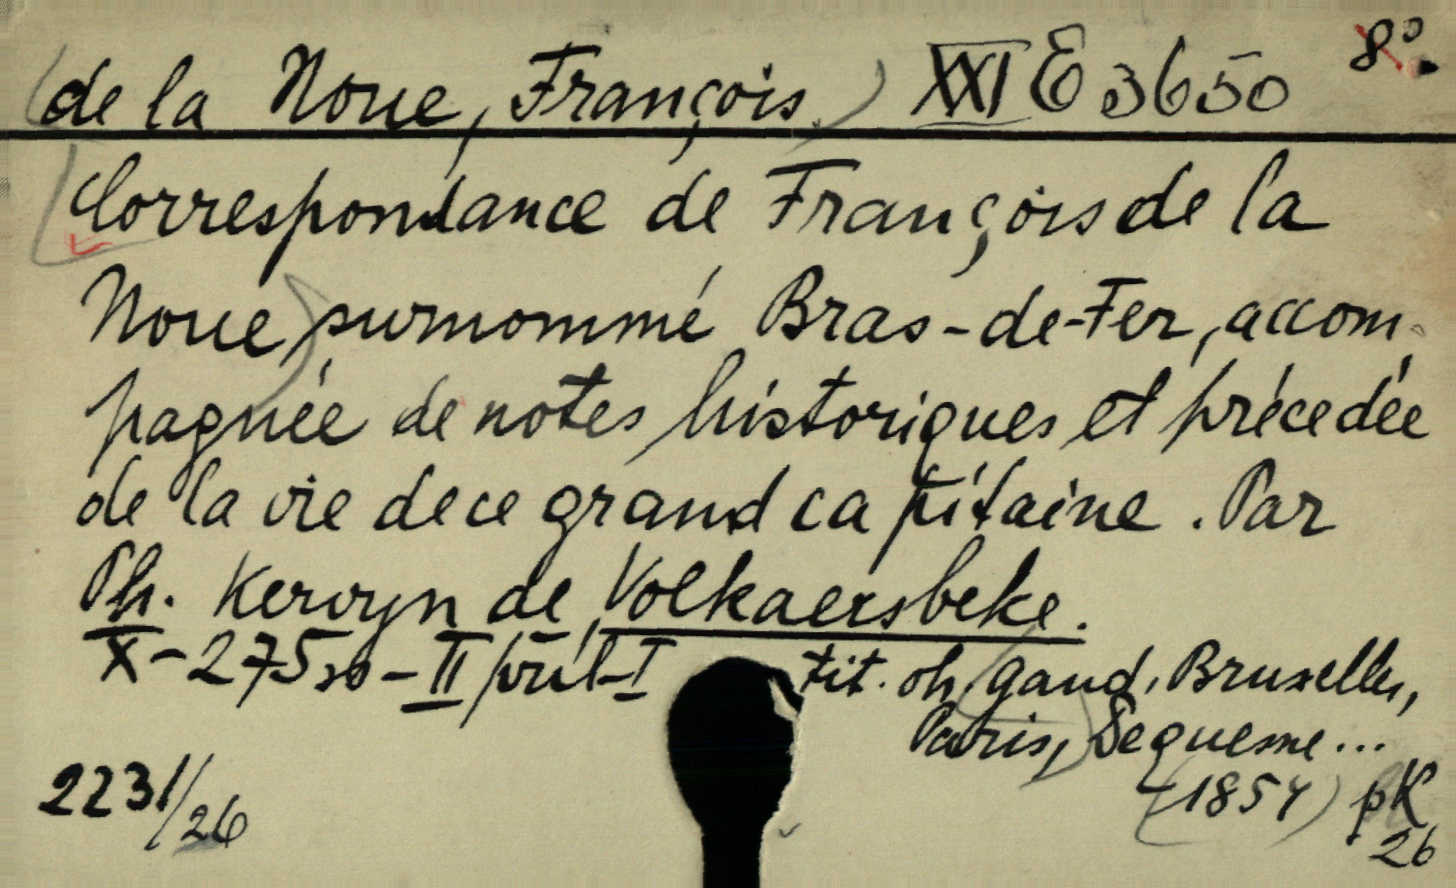 (de la Noue, François.) XXI E 3650 8°.
Correspondance de François de la
Noue, surnommé Bras-de-Fer, accom-
pagnée de notes historiques et précedée
de la vie de ce grand capitaine. Par
Ph. Kervyn de Volkaersbeke.
X-275 - II - I tit. Gand, Bruxelles,
Paris, Dequesne...
2231/26 (1854) pK
26